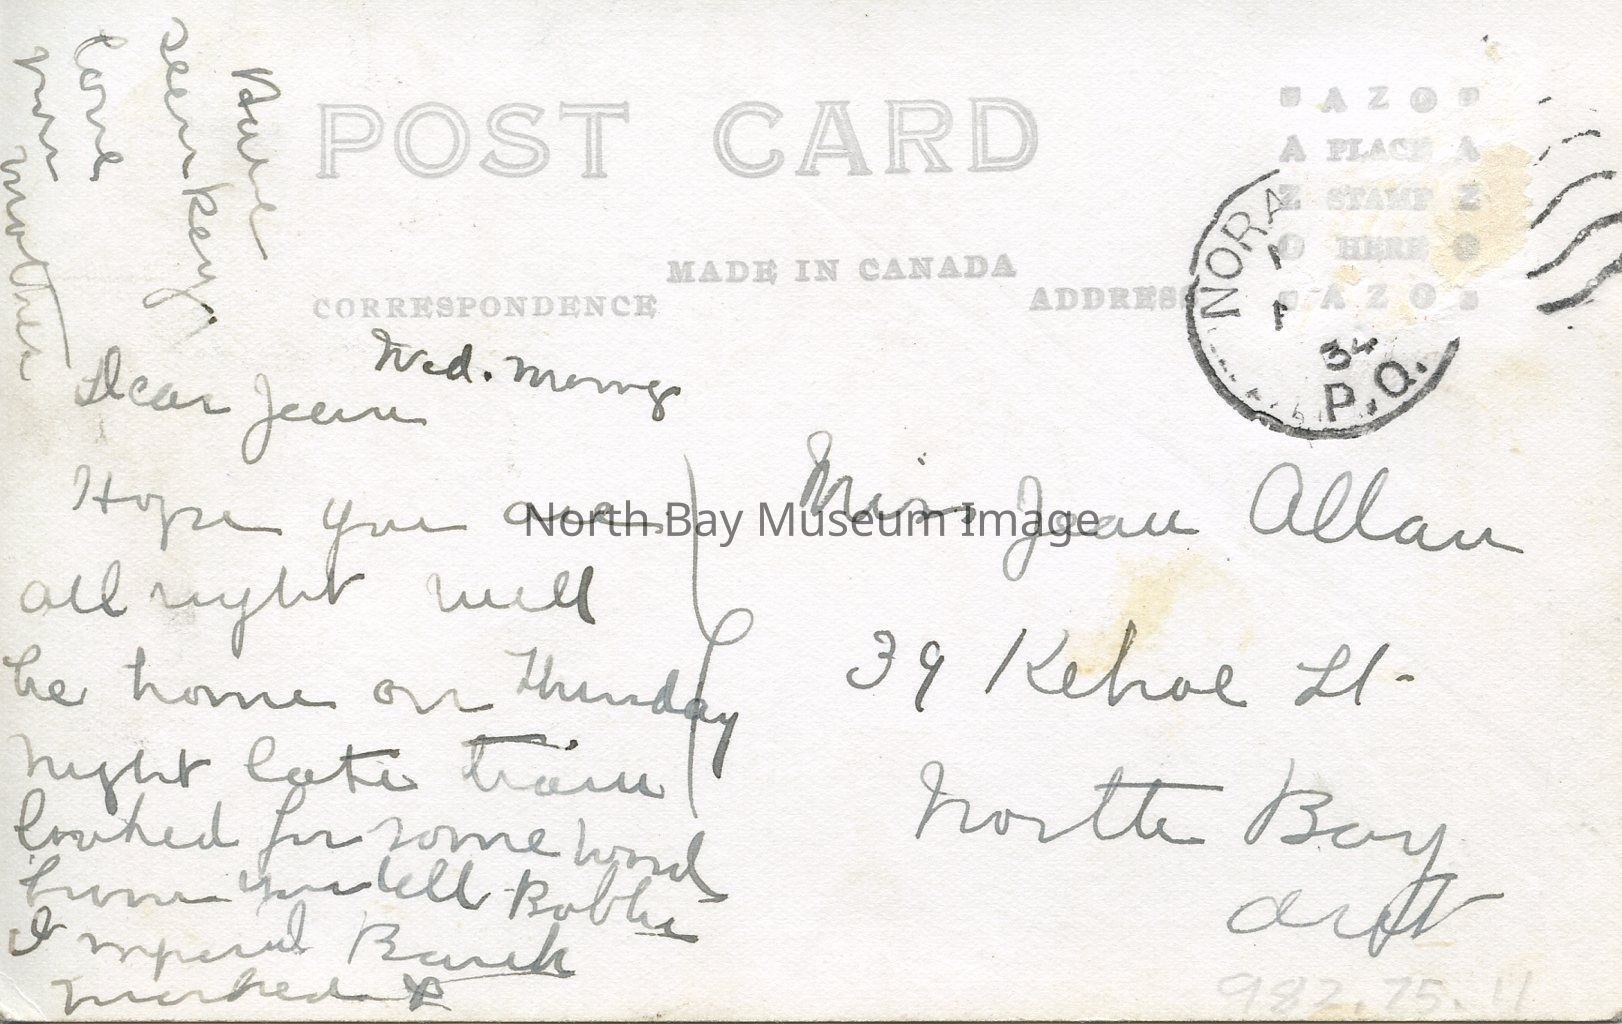 POST CARD
MADE IN CANADA
CORRESPONDENCE
ADDRESS
AZO
A PLACE A
Z STAMP Z
O HERE O
AZO
NORA
34
P.Q.
Wed. morng
Dear Jean
Hope you are
all right will
be home on Thursday
night late train
looked for some word
from you tell Bobbie
Imperial Bank
marked X
Have
seen key
love
your
mother
Miss Jean Allan
39 Kehoe St.
North Bay
Ont
North Bay Museum Image
982.75.11